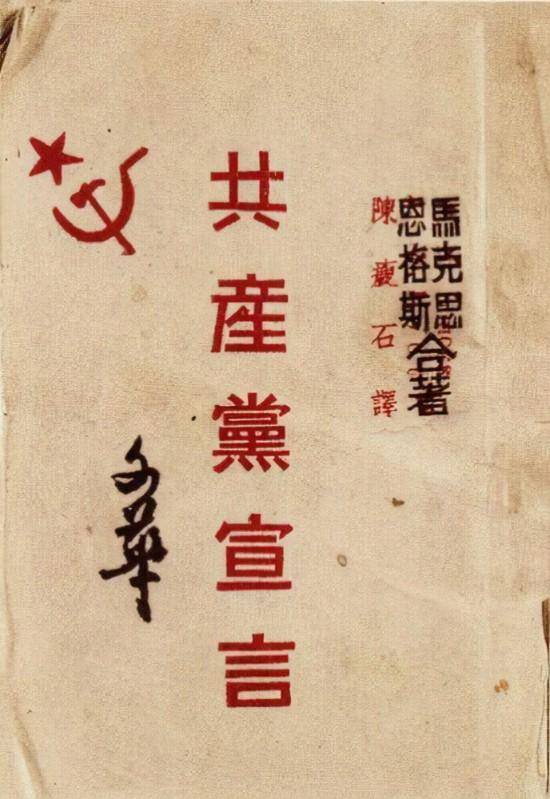 馬克思
恩格斯
合著
陳瘦石譯
共産黨宣言
文華